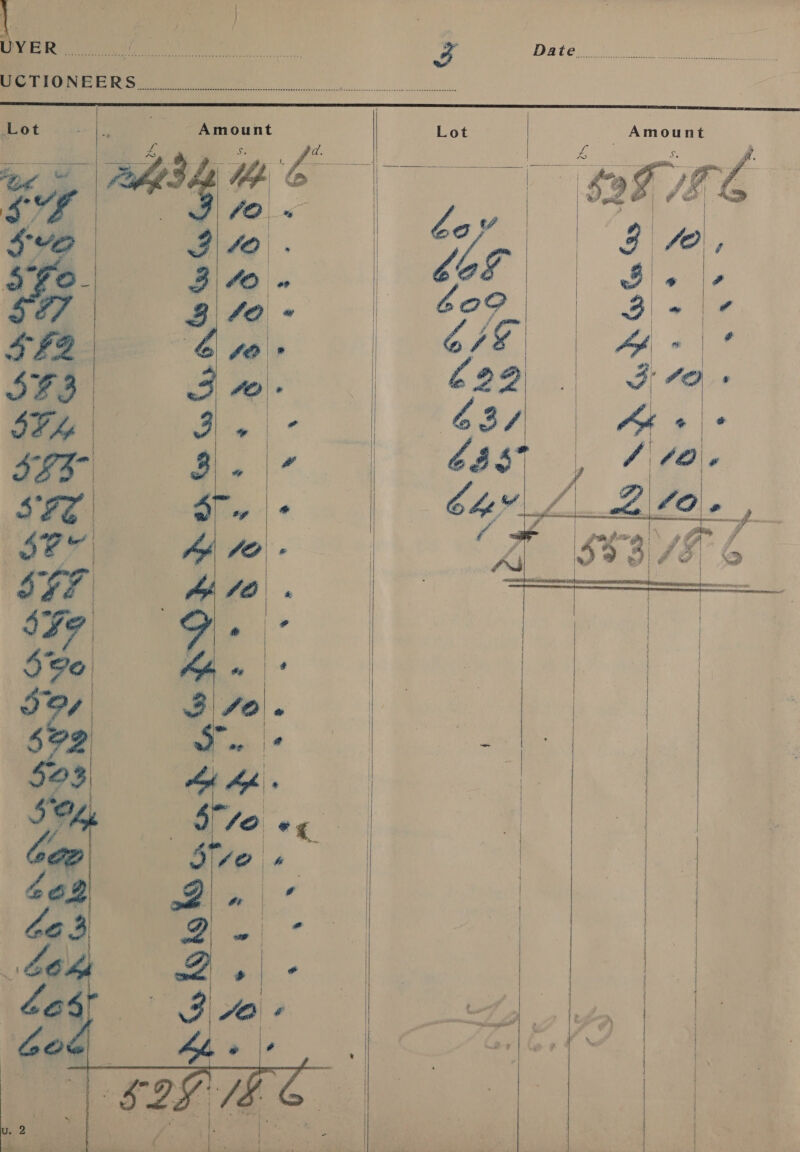 UYER 3 Date
UCTIONEERS
Lot Amount
£ s. d.
434 14 6
578 3 10 "
3 10 .
580 3 10 "
581 3 10 "
582 6 10 "
583 3 10 "
584 3 " "
585 3 " "
586 5 " "
587 4 10 "
588 4 10 "
589 9 " "
590 4 " "
591 3 10 "
592 5 " "
593 4 4 "
594 5 10 "
600 5 10 "
602 2 " "
603 2 " "
604 2 " "
605 3 10 "
606 4 " "
528 18 6
U. 2
Lot Amount
£ s. d.
528 18 6
607 3 10 "
608 3 " "
609 3 " "
618 4 " "
622 3 10 "
631 4 " "
635 1 10 "
647 2 10 "
553 18 6